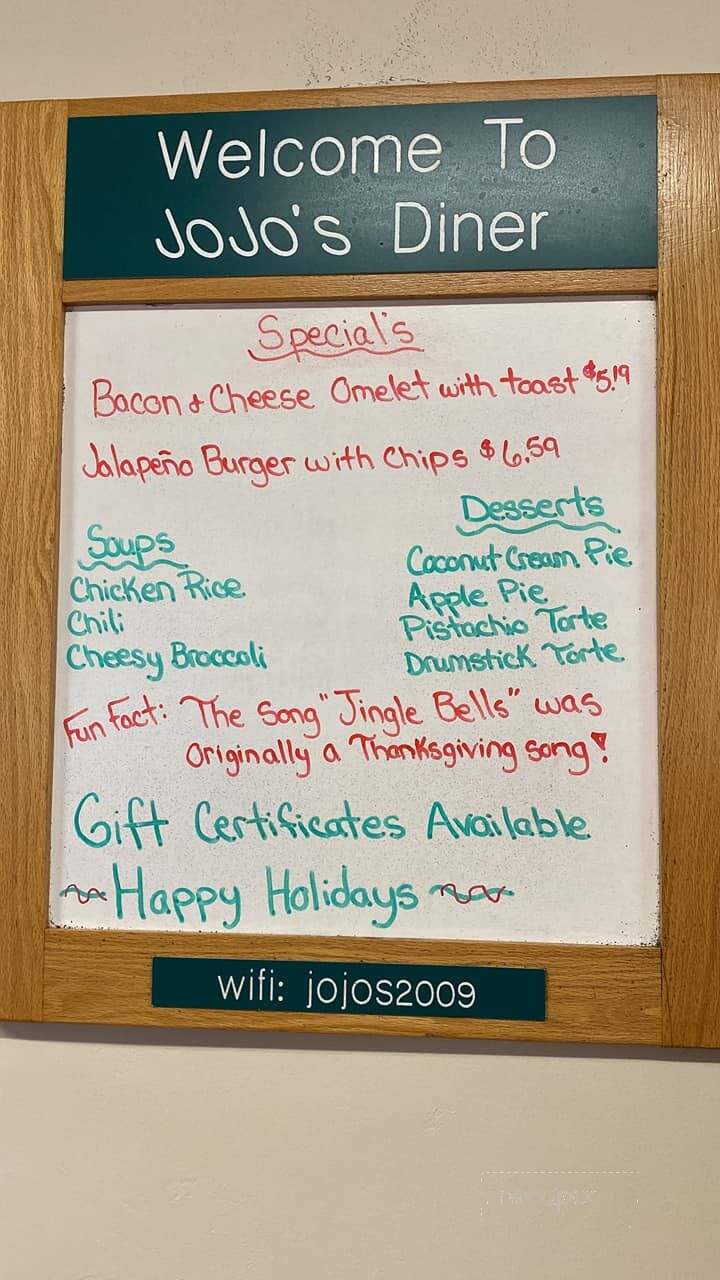 Welcome To
JoJo's Diner
Special's
Bacon & Cheese Omelet with toast $5.19
Jalapeño Burger with Chips $6.59
Soups
Chicken Rice
Chili
Cheesy Broccoli
Desserts
Coconut Cream Pie
Apple Pie
Pistachio Torte
Drumstick Torte
Fun Fact: The Song "Jingle Bells" was
Originally a Thanksgiving song!
Gift Certificates Available
Happy Holidays
wifi: jojos2009